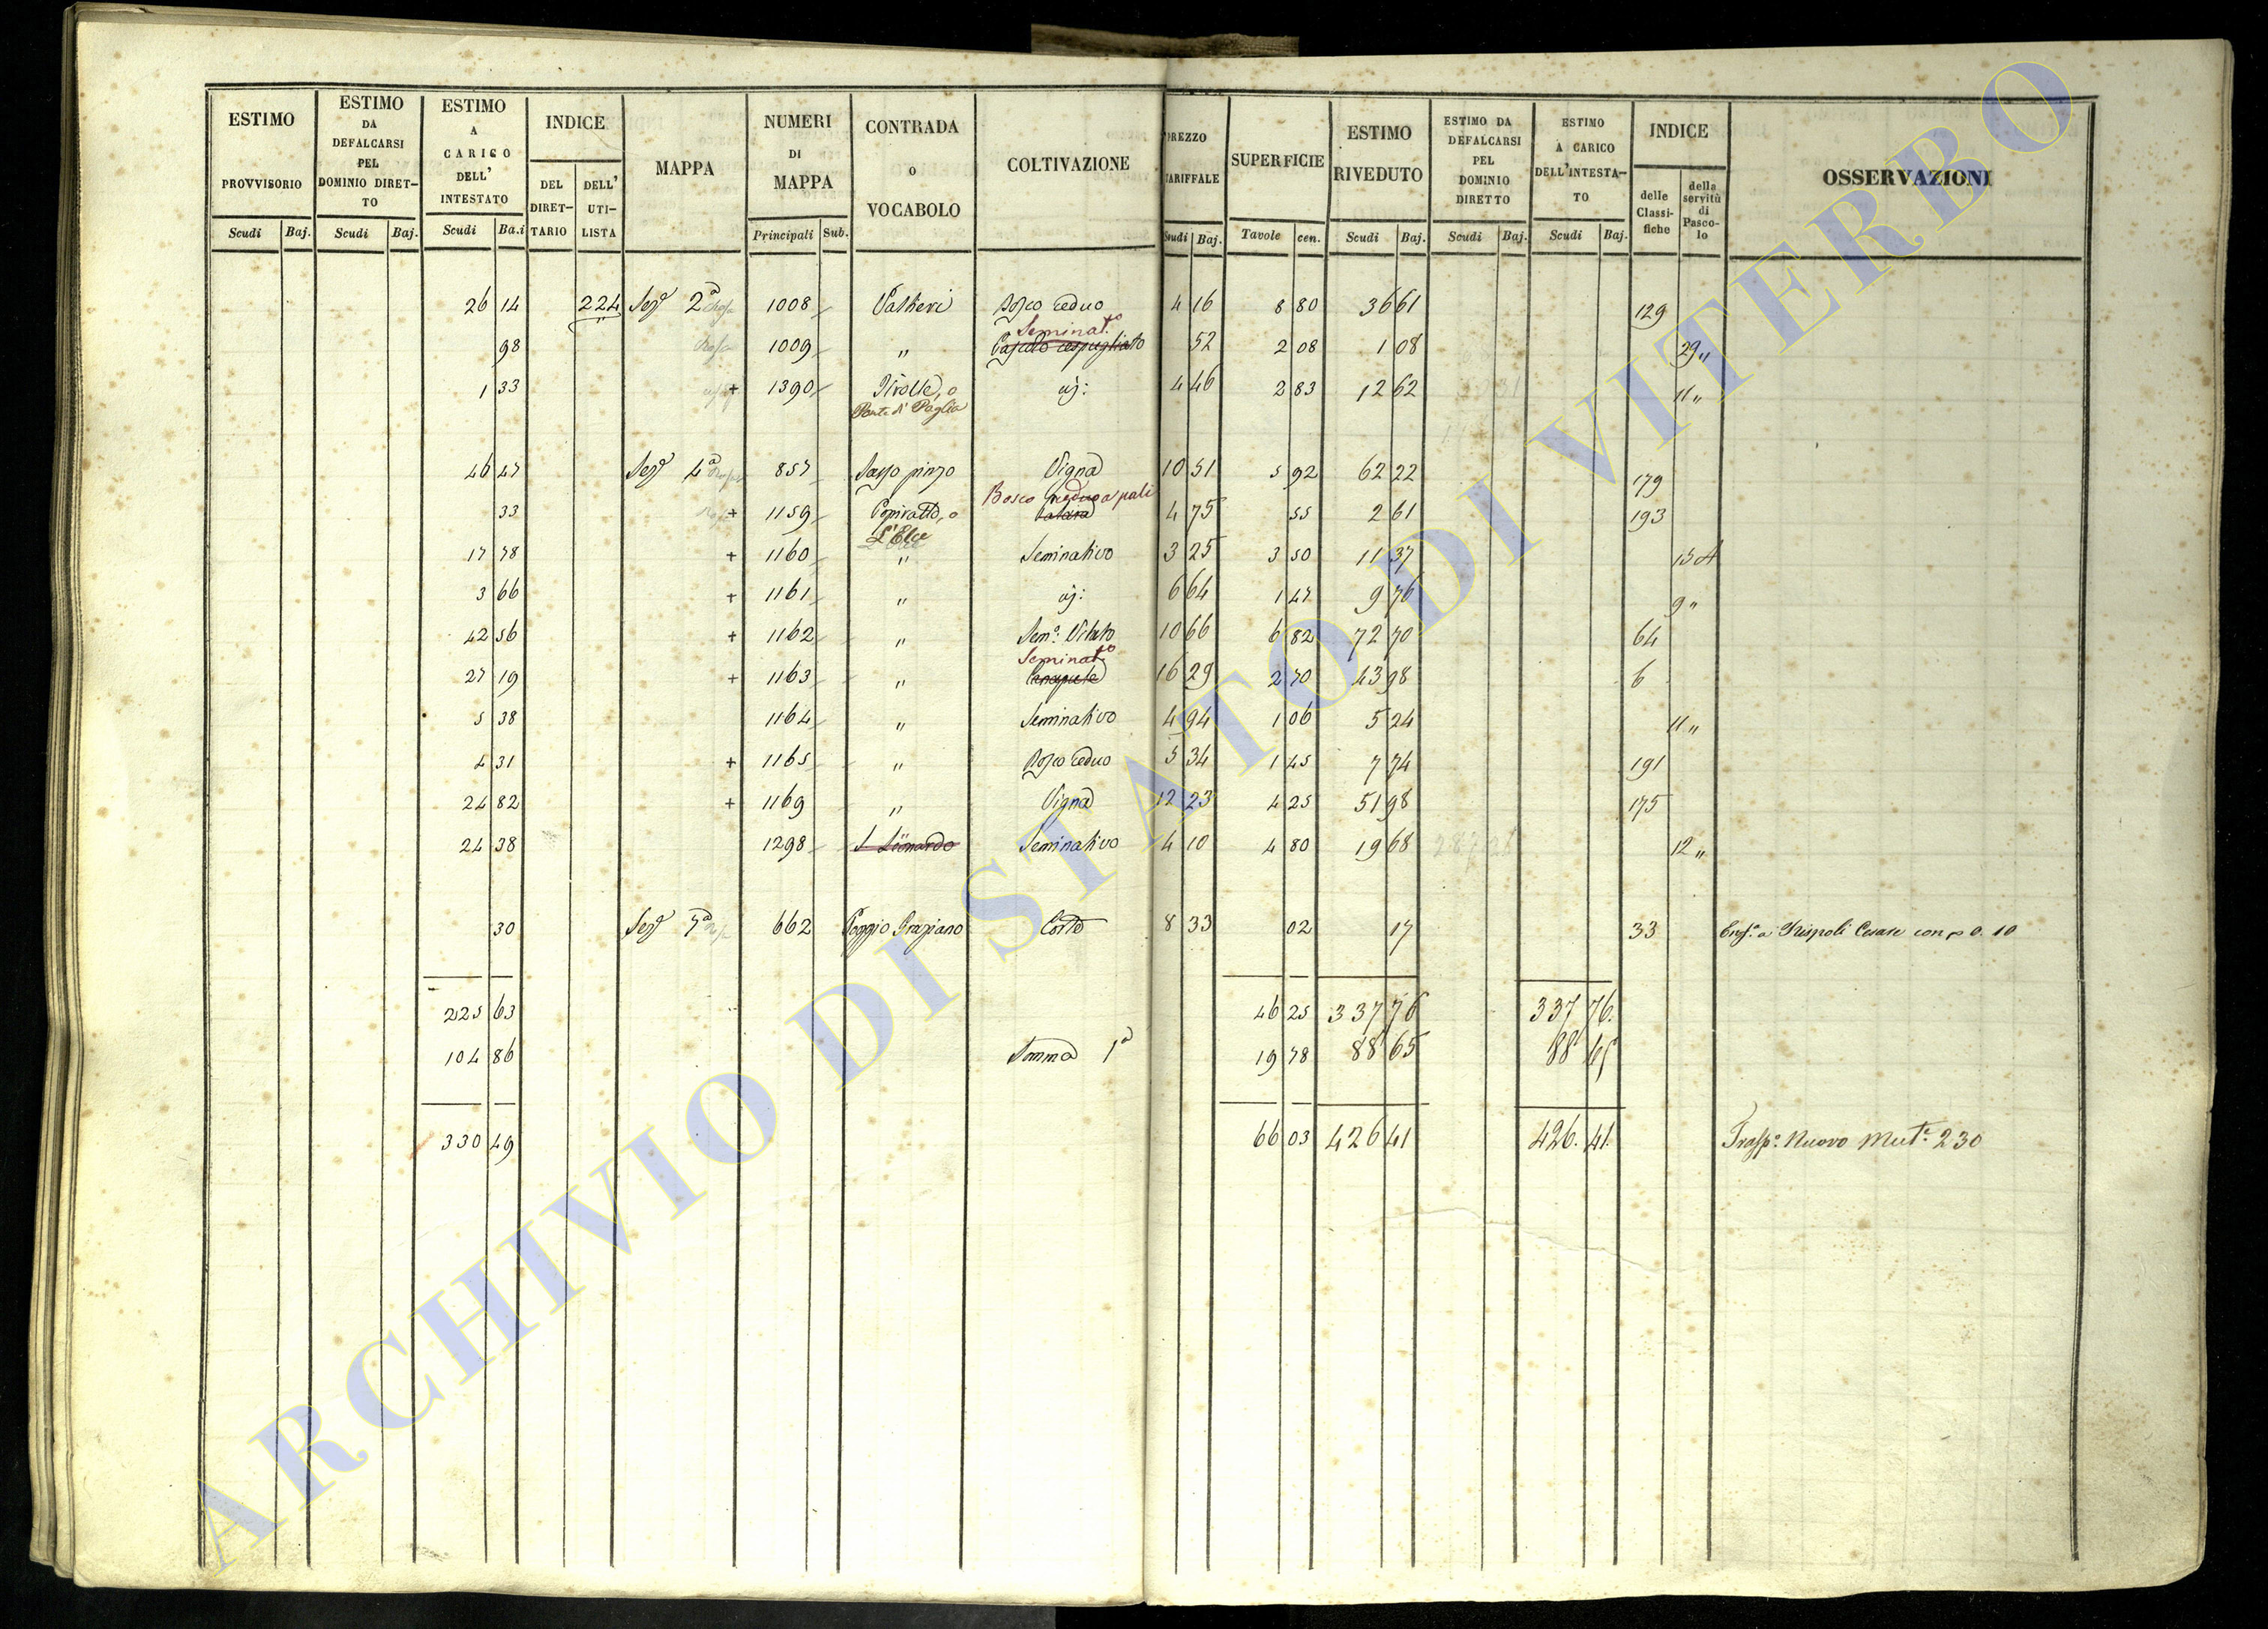 ESTIMO PROVVISORIO Scudi Baj.
ESTIMO DA DEFALCARSI PEL DOMINIO DIRET-TO Scudi Baj.
ESTIMO A CARICO DELL' INTESTATO Scudi Ba.i
INDICE DEL DIRET-TARIO DELL' UTI-LISTA
MAPPA
NUMERI DI MAPPA Principali Sub.
CONTRADA o VOCABOLO
COLTIVAZIONE
PREZZO TARIFFALE Scudi Baj.
SUPERFICIE Tavole cen.
ESTIMO RIVEDUTO Scudi Baj.
ESTIMO DA DEFALCARSI PEL DOMINIO DIRETTO Scudi Baj.
ESTIMO A CARICO DELL'INTESTA-TO Scudi Baj.
INDICE delle Classi-fiche della servitù di Pasco-lo
OSSERVAZIONI
26 14 224 Sez.e 2a 1008 Bosco ceduo 4 16 8 80 36 61 129
Seminat.o
98 1009 " Pascolo cespugliato 52 2 08 1 08 29 "
1 33 + 1390 o id: 4 46 2 83 12 62 11 "
Ponte di Paglia
46 47 Sez.e 4a 857 Sasso pinzo Vigna 10 51 5 92 62 22 179
Bosco ceduo a pali
33 + 1159 o 4 75 55 2 61 193
L'Elce
17 78 + 1160 " Seminativo 3 25 3 50 11 37 15 A
3 66 + 1161 " id: 6 64 1 47 9 76 9 "
42 56 + 1162 " Sem.o Vitato 10 66 6 82 72 70 64
Seminat.o
27 19 + 1163 " Canapule 16 29 2 70 43 98 6
5 38 1164 " Seminativo 4 94 1 06 5 24 11 "
4 31 + 1165 " Bosco ceduo 5 34 1 45 7 74 191
24 82 + 1169 " Vigna 12 23 4 25 51 98 175
24 38 1298 S Leonardo Seminativo 4 10 4 80 19 68 12 "
30 Sez.e 7a 662 Poggio Graziano Corte 8 33 02 17 33 a Rispoli Cesare con 0.10
225 63 46 25 337 76 337 76.
104 86 Somma 1a 19 78 88 65 88 65
330 49 66 03 426 41 426. 41. Trasp.o Nuovo Mut.e 230
ARCHIVIO DI STATO DI VITERBO